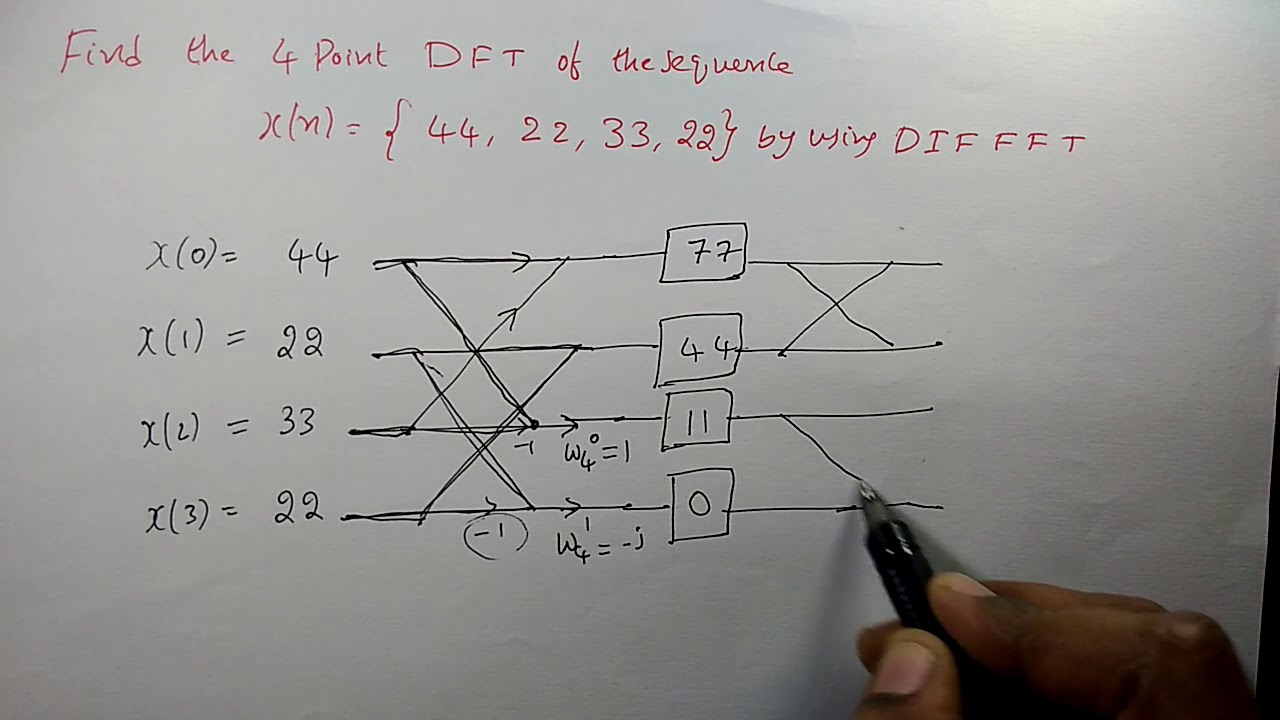 Find the 4 Point DFT of the sequence
x(n) = { 44, 22, 33, 22} by using DIF FFT
x(0) = 44
77
x(1) = 22
44
x(2) = 33
-1 W₄⁰ = 1
11
x(3) = 22
-1 W₄¹ = -j
0